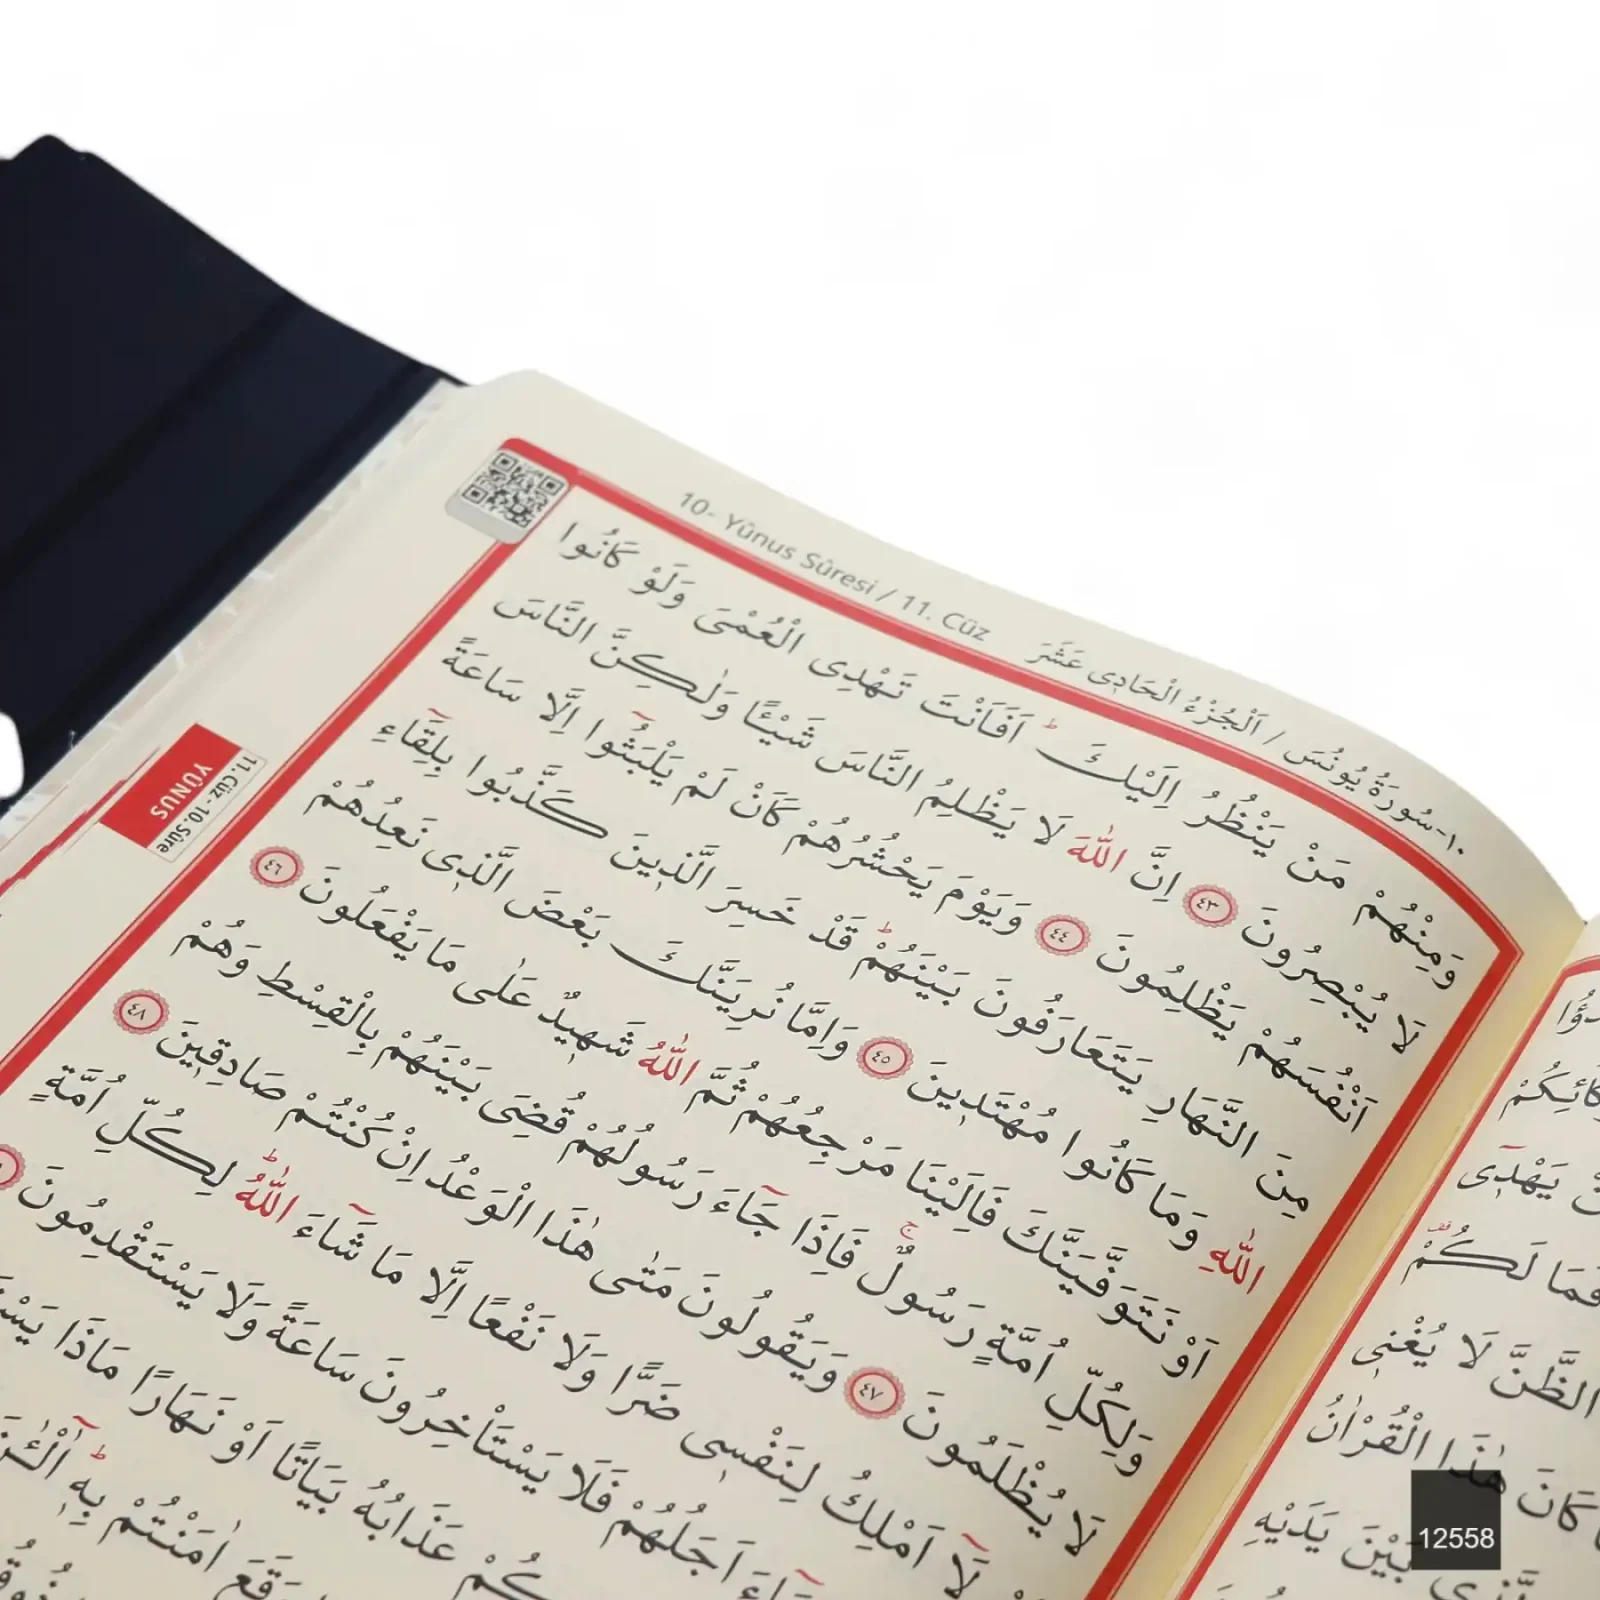 10- Yûnus Sûresi / 11. Cüz
١٠-سُورَةُ يُونُسَ / اَلْجُزْءُ الْحَادِى عَشَرَ
وَمِنْهُمْ مَنْ يَنْظُرُ اِلَيْكَ ط اَفَاَنْتَ تَهْدِى الْعُمْىَ وَلَوْ كَانُوا
لَا يُبْصِرُونَ ٤٣ اِنَّ اللّٰهَ لَا يَظْلِمُ النَّاسَ شَيْـًٔا وَلٰكِنَّ النَّاسَ
اَنْفُسَهُمْ يَظْلِمُونَ ٤٤ وَيَوْمَ يَحْشُرُهُمْ كَاَنْ لَمْ يَلْبَثُٓوا اِلَّا سَاعَةً
مِنَ النَّهَارِ يَتَعَارَفُونَ بَيْنَهُمْ ط قَدْ خَسِرَ الَّذٖينَ كَذَّبُوا بِلِقَٓاءِ
اللّٰهِ وَمَا كَانُوا مُهْتَدٖينَ ٤٥ وَاِمَّا نُرِيَنَّكَ بَعْضَ الَّذٖى نَعِدُهُمْ
اَوْ نَتَوَفَّيَنَّكَ فَاِلَيْنَا مَرْجِعُهُمْ ثُمَّ اللّٰهُ شَهٖيدٌ عَلٰى مَا يَفْعَلُونَ ٤٦
وَلِكُلِّ اُمَّةٍ رَسُولٌ ج فَاِذَا جَٓاءَ رَسُولُهُمْ قُضِىَ بَيْنَهُمْ بِالْقِسْطِ وَهُمْ
لَا يُظْلَمُونَ ٤٧ وَيَقُولُونَ مَتٰى هٰذَا الْوَعْدُ اِنْ كُنْتُمْ صَادِقٖينَ ٤٨
لَٓا اَمْلِكُ لِنَفْسٖى ضَرًّا وَلَا نَفْعًا اِلَّا مَا شَٓاءَ اللّٰهُ ط لِكُلِّ اُمَّةٍ
اَجَلُهُمْ فَلَا يَسْتَاْخِرُونَ سَاعَةً وَلَا يَسْتَقْدِمُونَ
عَذَابُهُ بَيَاتًا اَوْ نَهَارًا مَاذَا
وَقَعَ اٰمَنْتُمْ بِهٖ ط
11. Cüz - 10.Sûre
YÛNUS
يَهْدٖٓى
فَمَا لَكُمْ
الظَّنَّ لَا يُغْنٖى
كَانَ هٰذَا الْقُرْاٰنُ
بَيْنَ يَدَيْهِ
12558